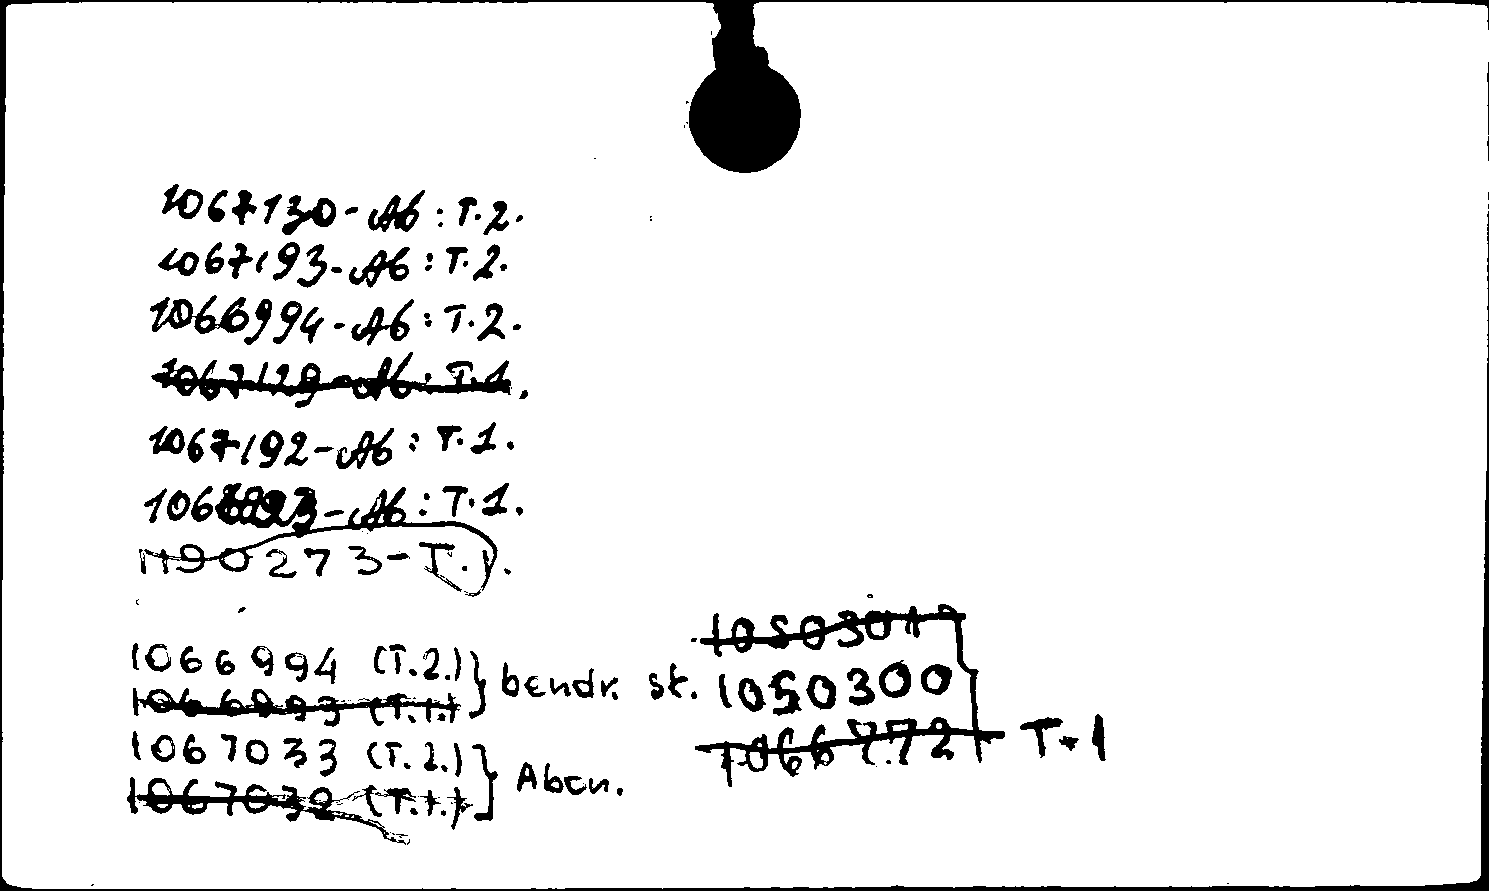 1067130-Ab: T.2.
1067193-Ab: T.2.
1066994-Ab: T.2.
1067129-Ab: T.1.
1067192-Ab: T.1.
-Ab: T.1.
1190273-T.1.
1066994 (T.2.) } bendr. sk.
1066993 (T.1.)
1067033 (T.2.) } Abon.
1067032 (T.1.)
1050301
1050300
1066772 T.1